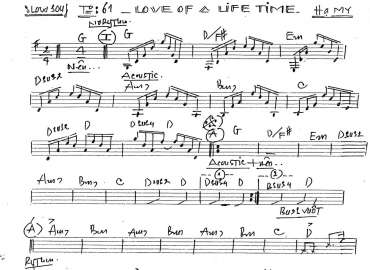 SLOW SOUL TZ: 61 - LOVE OF A LIFE TIME - Ha MY
NORYTHM
G I G D/F# Em
4
Dsus2 Acoustic Am7 Bm7 C
Dsus2 D Dsus4 D A G D/F# Em Dsus2
Acoustic
Am7 Bm7 C Dsus2 D Dsus4 D Bsus4 D
1 2
A Am7 Bm Am7 Bm Am7 Bm C D
Rythm